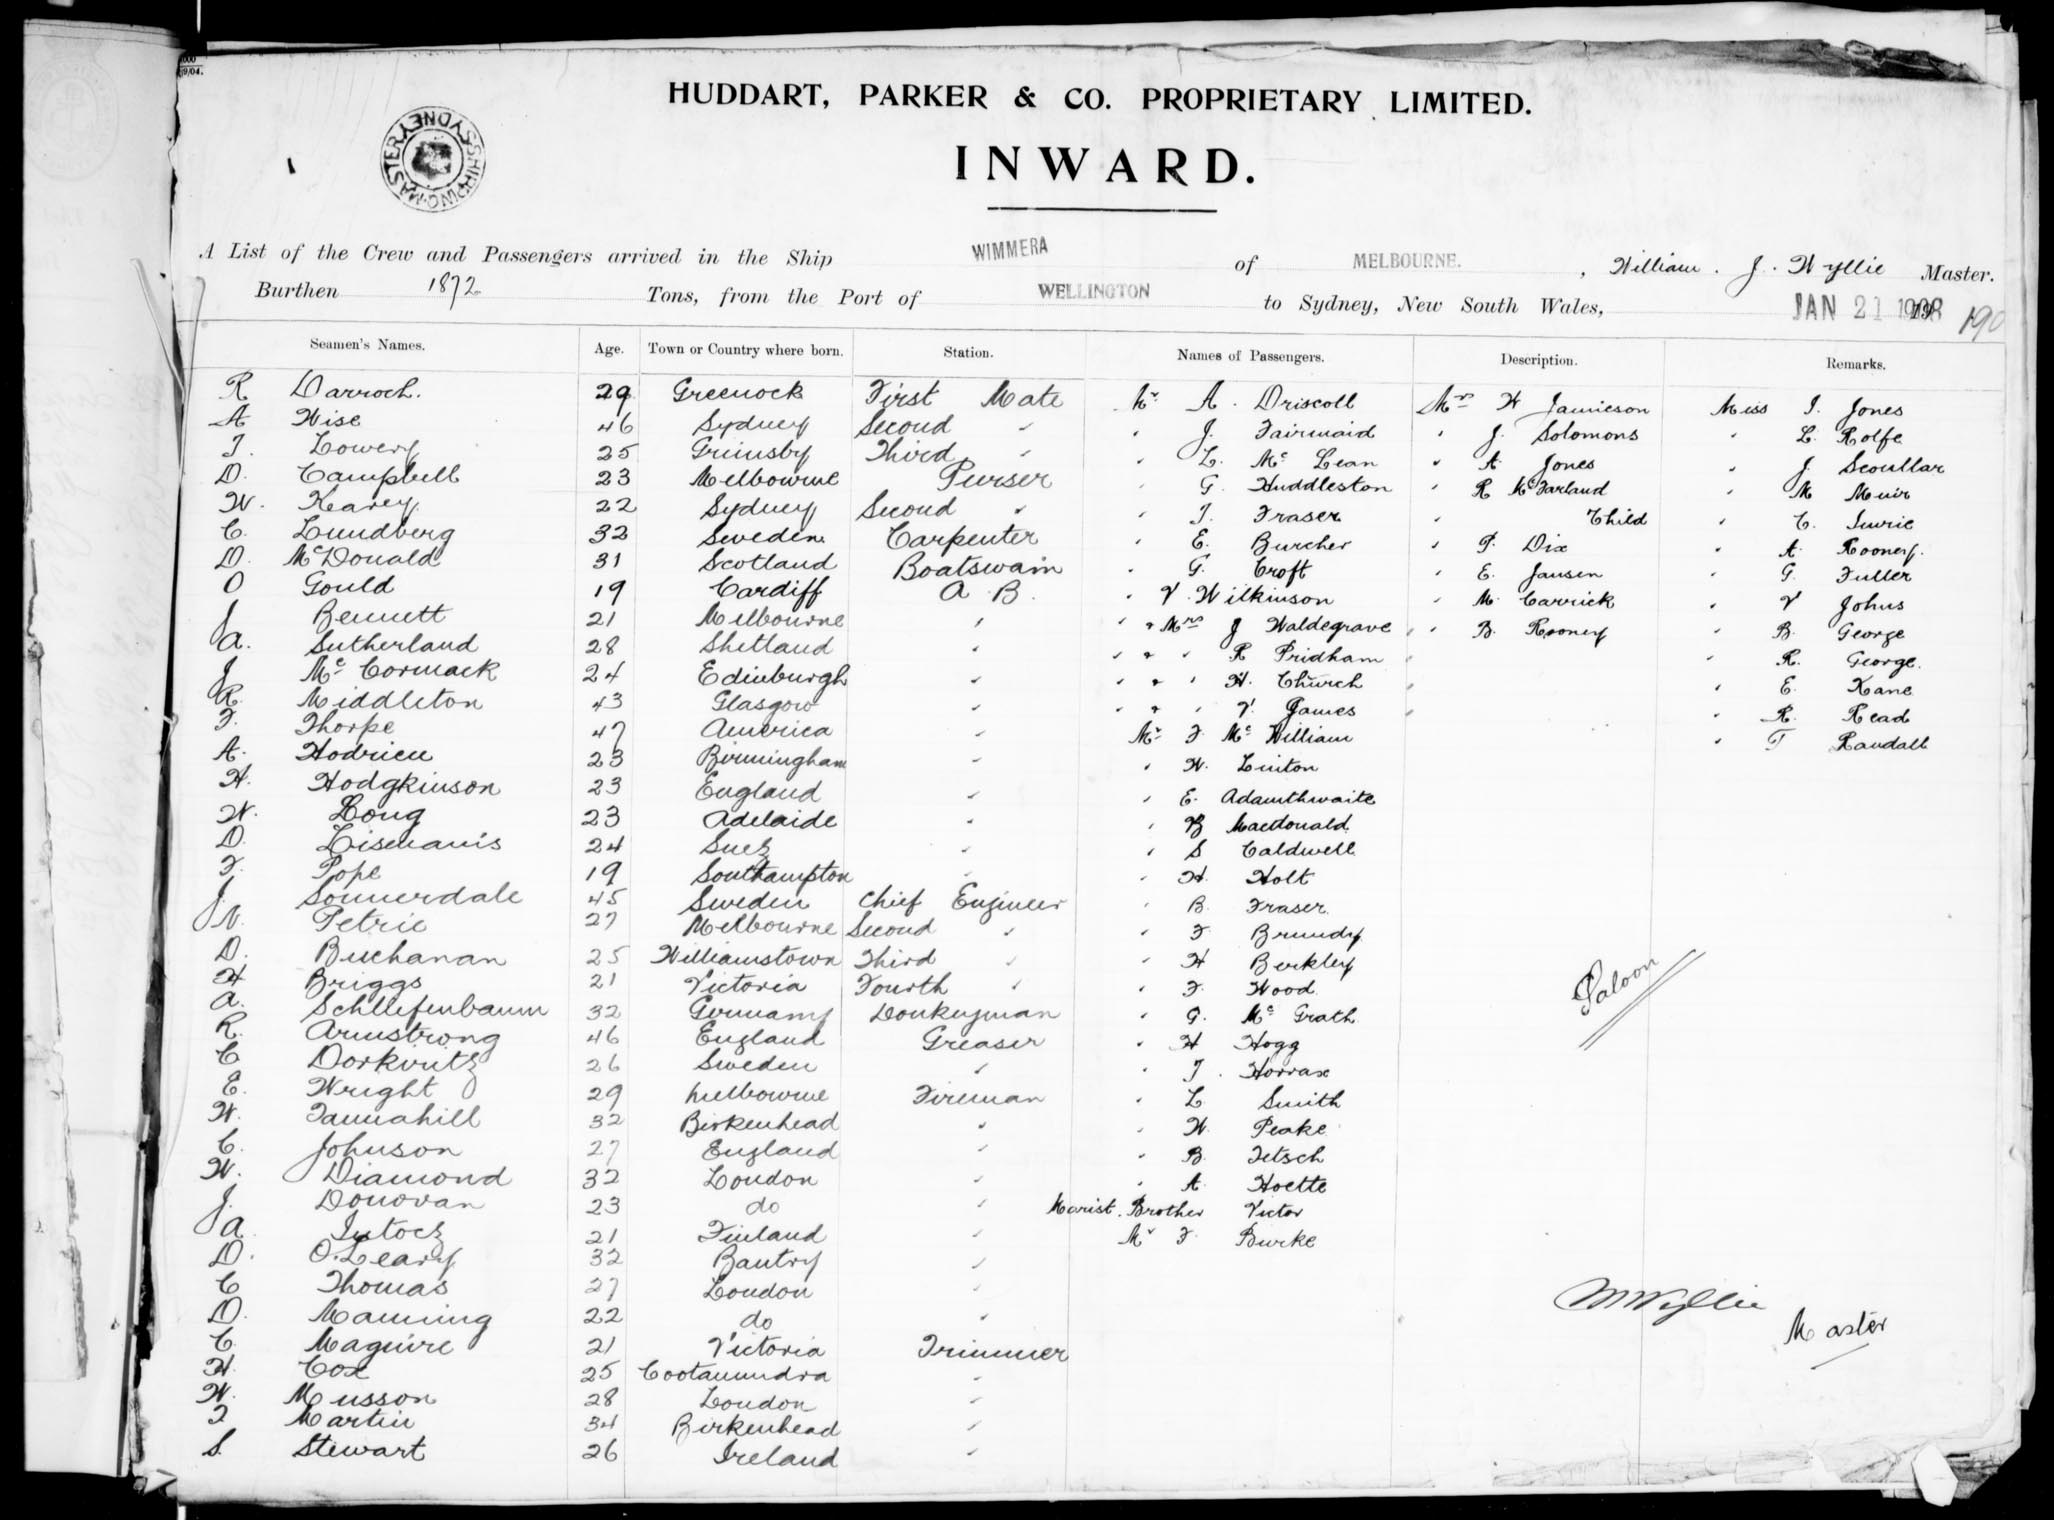 HUDDART, PARKER & CO. PROPRIETARY LIMITED.
INWARD.
SHIPPING MASTER SYDNEY
A List of the Crew and Passengers arrived in the Ship WIMMERA of MELBOURNE. , William. J. Wyllie Master.
Burthen 1872 Tons, from the Port of WELLINGTON to Sydney, New South Wales, JAN 21 1908 190
Seamen's Names. Age. Town or Country where born. Station. Names of Passengers. Description. Remarks.
R Darroch. 29 Greenock First Mate Mr. A. Driscoll Mrs W Jamieson Miss I. Jones
A Wise 46 Sydney Second " " J. Fairmaid " J. Solomons " L. Rolfe
T. Lowery 25 Grimsby Third " " L. Mc Lean " A. Jones " J. Scoullar
D. Campbell 23 Melbourne Purser " G. Huddleston " R McFarland " M Muir
W. Kearey 22 Sydney Second " " T. Fraser " Child " C.
C. Lundberg 32 Sweden Carpenter " E. Burcher " P. Dix " A. Rooney.
D. McDonald 31 Scotland Boatswain " G. Croft " E. Jansen " G. Fuller
O Gould 19 Cardiff A. B. " V. Wilkinson " M. Carrick " V Johns
J Bennett 21 Melbourne " " " Mrs J Waldegrave " " B. Rooney " B. George
A. Sutherland 28 Shetland " " " " R Pridham " " R. George.
J Mc Cormack 24 Edinburgh " " " " H. Church " " E. Kane
R. Middleton 43 Glasgow " " " " V. James " " R. Read
F. Thorpe 47 America " Mr F Mc William " T Randall
A. Hodrien 23 Birmingham " " W. Linton
H. Hodgkinson 23 England " " E. Adamthwaite
W. Long 23 Adelaide " " B Macdonald.
D. Lismanis 24 Suez " " S Caldwell
F. Pope 19 Southampton " " H. Holt
J. Sonnerdale 45 Sweden Chief Engineer " B. Fraser.
N. Petrie 27 Melbourne Second " " F Brundy
D. Buchanan 25 Williamstown Third " " H Berkley
H Briggs 21 Victoria Fourth " " F. Wood
A. Schllefenbaum 32 Germany Donkeyman " G. Mc Grath
R. Armstrong 46 England Greaser " H Hogg
C Dorkvitz 26 Sweden " " T. Horrax
E. Wright 29 Melbourne Fireman " L. Smith
W. Tannahill 32 Birkenhead " " W. Peake
C. Johnson 27 England " " B. Tetsch
W. Diamond 32 London " " A. Hoette
J. Donovan 23 do " Marist. Brother Victor
A. 21 Finland " Mr F. Burke
D. O'Leary 32 Bantry "
C Thomas 27 London "
D. Manning 22 do "
C. Maguire 21 Victoria Trimmer
H. Cox 25 Cootamundra "
W. Musson 28 London "
T Martin 34 Birkenhead "
S. Stewart 26 Ireland "
Saloon
W Wyllie
Master